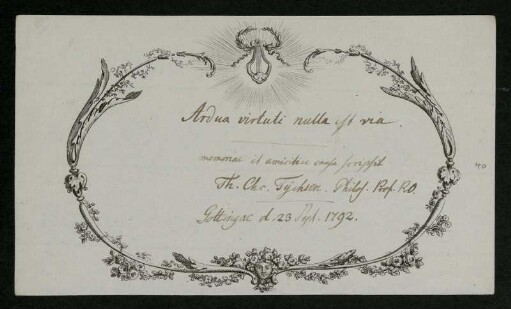 Ardua virtuti nulla est via.
memoriae et amicitiae causa scripsit
Th. Chr. Tychsen. Philos. Prof. P.O.
Gottingae d. 23 1792.
40